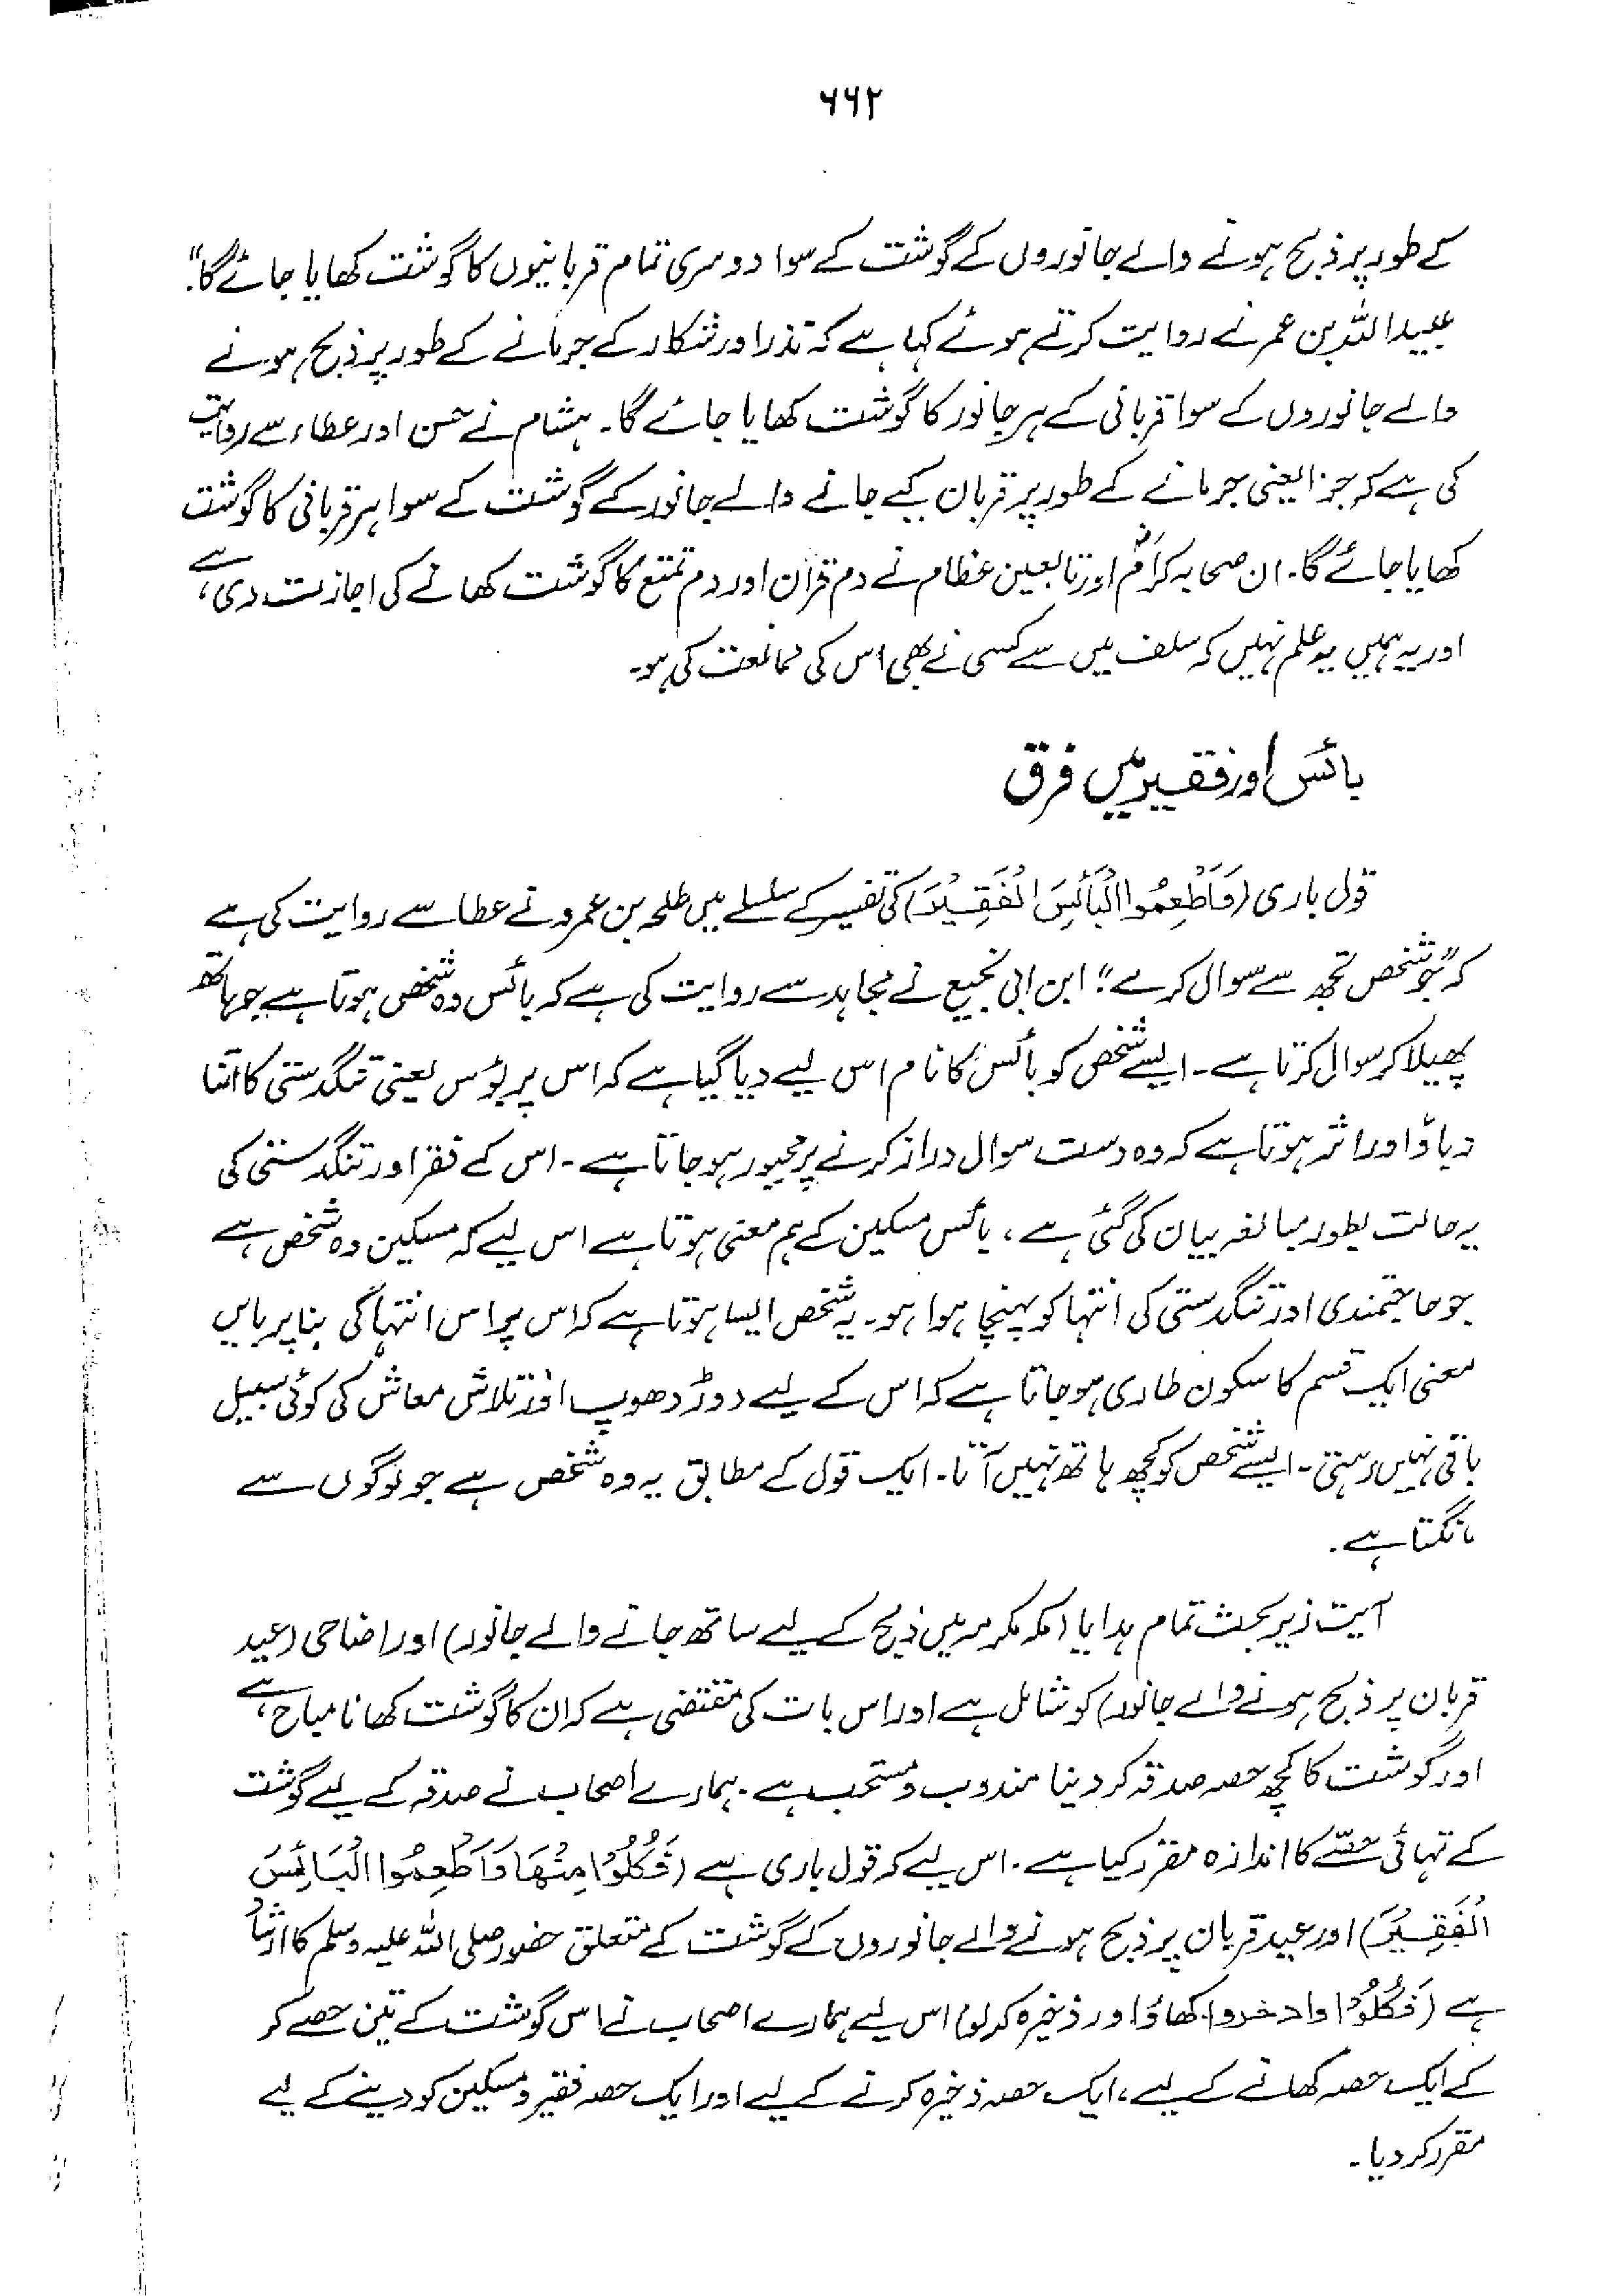 ۶۶۲
کے طور پر ذبح ہونے والے جانوروں کے گوشت کے سوا دوسری تمام قربانیوں کا گوشت کھایا جائے گا"۔
عبیداللہ بن عمر نے روایت کرتے ہوئے کہا ہے کہ نذر اور شکار کے جرمانے کے طور پر ذبح ہونے
والے جانوروں کے سوا قربانی کے ہر جانور کا گوشت کھایا جائے گا۔ ہشام نے حسن اور عطاء سے روایت
کی ہے کہ جزا یعنی جرمانے کے طور پر قربان کیے جانے والے جانور کے گوشت کے سوا ہر قربانی کا گوشت
کھایا جائے گا۔ ان صحابہ کرامؓ اور تابعین عظام نے دم قران اور دم تمتع کا گوشت کھانے کی اجازت دی ہے،
اور یہ ہمیں یہ علم نہیں کہ سلف میں سے کسی نے بھی اس کی ممانعت کی ہو۔
بائس اور فقیر میں فرق
قول باری (وَاَطْعِمُوا الْبَائِسَ الْفَقِيْرَ) کی تفسیر کے سلسلے میں طلحہ بن عمرو نے عطا سے روایت کی ہے
کہ "جو شخص تجھ سے سوال کرے"؛ ابن ابی نجیح نے مجاہد سے روایت کی ہے کہ بائس وہ شخص ہوتا ہے جو ہاتھ
پھیلا کر سوال کرتا ہے۔ ایسے شخص کو بائس کا نام اس لیے دیا گیا ہے کہ اس پر بؤس یعنی تنگدستی کا اتنا
دباؤ اور اثر ہوتا ہے کہ وہ دست سوال دراز کرنے پر مجبور ہو جاتا ہے۔ اس کے فقر اور تنگدستی کی
یہ حالت بطور مبالغہ بیان کی گئی ہے، بائس مسکین کے ہم معنی ہوتا ہے اس لیے کہ مسکین وہ شخص ہے
جو حاجتمندی اور تنگدستی کی انتہا کو پہنچا ہوا ہو۔ یہ شخص ایسا ہوتا ہے کہ اس پر اس انتہا کی بنا پر بایں
معنی ایک قسم کا سکون طاری ہو جاتا ہے کہ اس کے لیے دوڑ دھوپ اور تلاش معاش کی کوئی سبیل
باقی نہیں رہتی۔ ایسے شخص کو کچھ ہاتھ نہیں آتا۔ ایک قول کے مطابق یہ وہ شخص ہے جو لوگوں سے
مانگتا ہے۔
آیت زیر بحث تمام ہدایا (مکہ مکرمہ میں ذبح کے لیے ساتھ جانے والے جانور) اور اضاحی (عید
قربان پر ذبح ہونے والے جانور) کو شامل ہے اور اس بات کی مقتضی ہے کہ ان کا گوشت کھانا مباح ہے،
اور گوشت کا کچھ حصہ صدقہ کر دینا مندوب و مستحب ہے۔ ہمارے اصحاب نے صدقہ کے لیے گوشت
کے تہائی حصّے کا اندازہ مقرر کیا ہے۔ اس لیے کہ قول باری ہے (فَكُلُوْا مِنْهَا وَاَطْعِمُوا الْبَائِسَ
الْفَقِيْرَ) اور عید قربان پر ذبح ہونے والے جانوروں کے گوشت کے متعلق حضور صلی اللہ علیہ وسلم کا ارشاد
ہے (فَكُلُوْا وادخروا۔ کھاؤ اور ذخیرہ کر لو) اس لیے ہمارے اصحاب نے اس گوشت کے تین حصے کر
کے ایک حصہ کھانے کے لیے، ایک حصہ ذخیرہ کرنے کے لیے اور ایک حصہ فقیر و مسکین کو دینے کے لیے
مقرر کر دیا۔